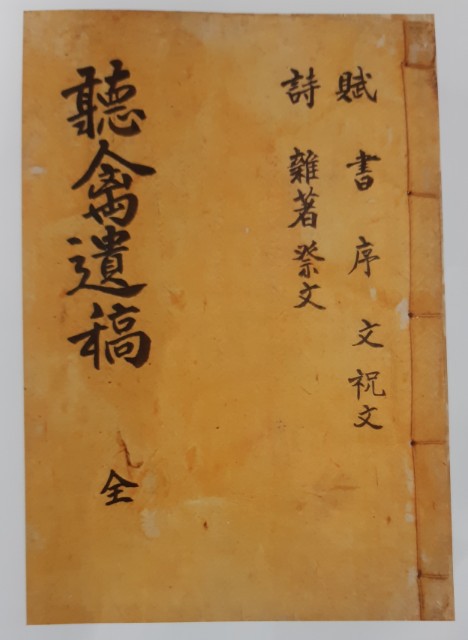 賦 書 序 文 祝文
詩 雜著 祭文
聽禽遺稿 全